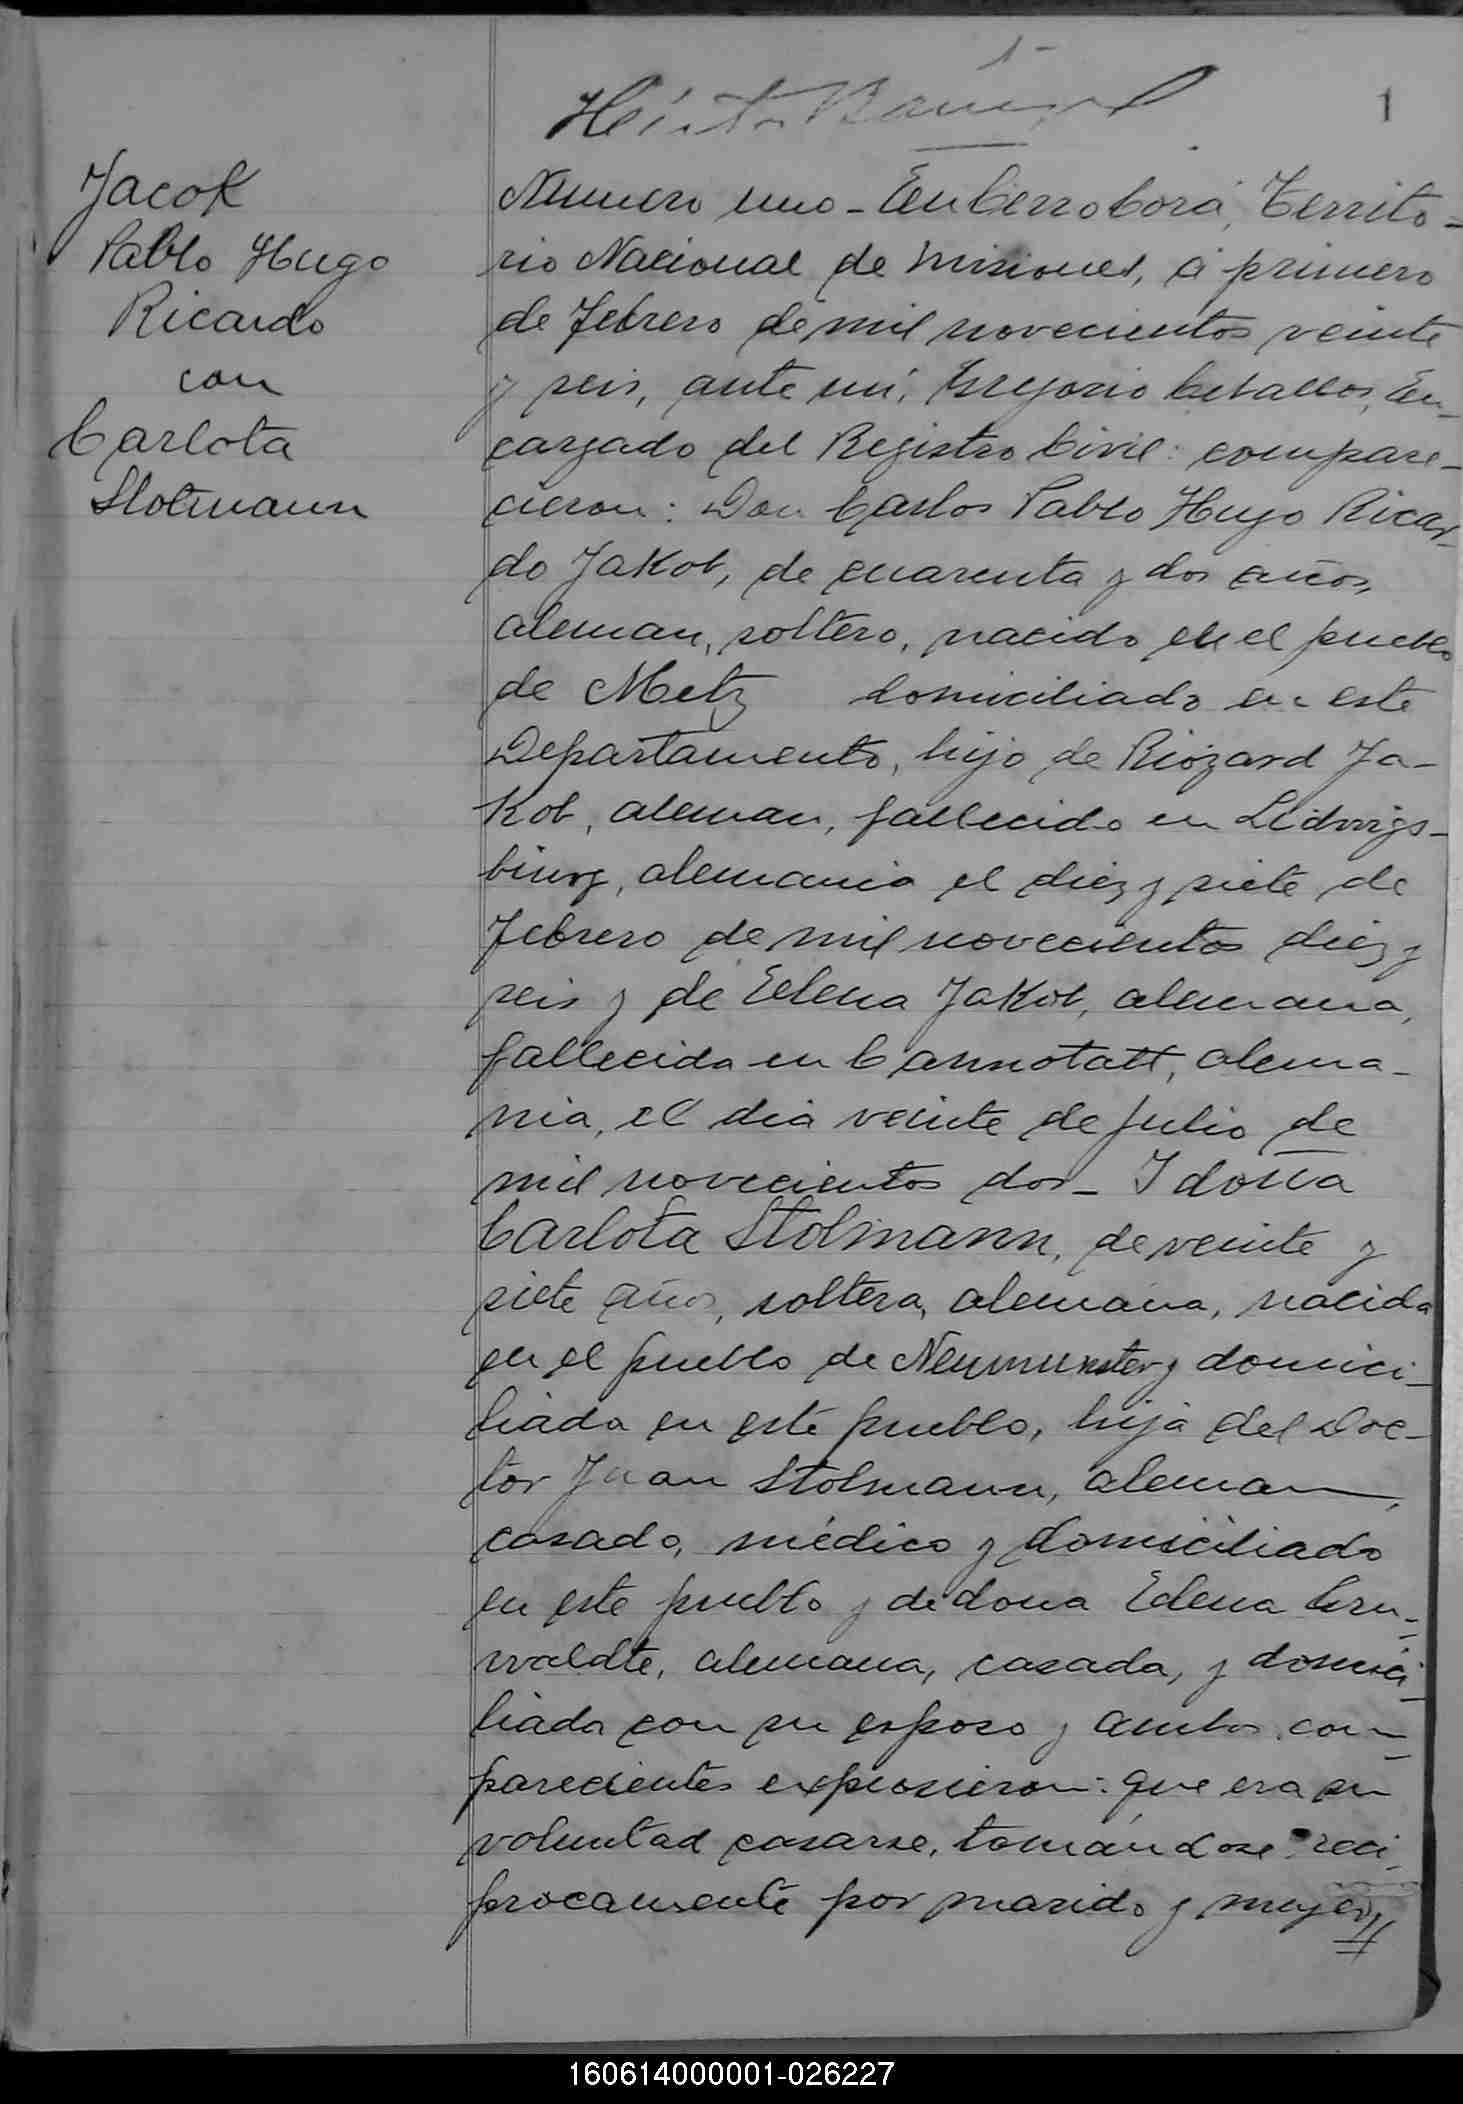 1
Jacob
Pablo Hugo
Ricardo
con
Carlota
Stolmann
Numero uno - En Cerro Corá, Territo-
rio Nacional de Misiones, á primero
de Febrero de mil novecientos veinte
y seis, ante mi, Gregorio Ceballos, En-
cargado del Registro Civil: compare-
cieron: Don Carlos Pablo Hugo Ricar-
do Jakob, de cuarenta y dos años,
aleman, soltero, nacido en el pueblo
de Metz domiciliado en este
Departamento, hijo de Riozard Ja-
kob, aleman, fallecido en Lidwigs-
burg, alemania el diez y siete de
Febrero de mil novecientos diez y
seis y de Eelena Jakob, alemana,
fallecida en Cannstatt, alema-
nia, el dia veinte de julio de
mil novecientos dos - Y doña
Carlota Stolmann, de veinte y
siete años, soltera, alemana, nacida
en el pueblo de Neumunster y domici-
liada en este pueblo, hija del Doc-
tor Juan Stolmann, aleman,
casado, médico y domiciliado
en este pueblo y de dona Edena Gru-
waldte, alemana, casada, y domici-
liada con su esposo y ambos com-
parecientes expusieron: que era su
voluntad casarse, tomándose reci-
procamente por marido y mujer//
160614000001-026227